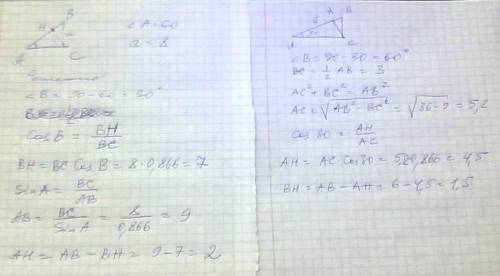 B
H
A
C
∠A=60
a=8
∠B = 90-60 = 30°
cos B = BH/BC
BH = BC·Cos B = 8·0,866 = 7
Sin A = BC/AB
AB = BC/Sin A = 8/0,866 = 9
AH = AB - BH = 9-7 = 2
H
B
6
A
C
∠B = 90-30 = 60°
BC = 1/2 AB = 3
AC² + BC² = AB²
AC = √AB² - BC² = √36-9 = 5,2
Cos 30 = AH/AC
AH = AC·Cos30 = 5,20,866 = 4,5
BH = AB - AH = 6-4,5 = 1,5